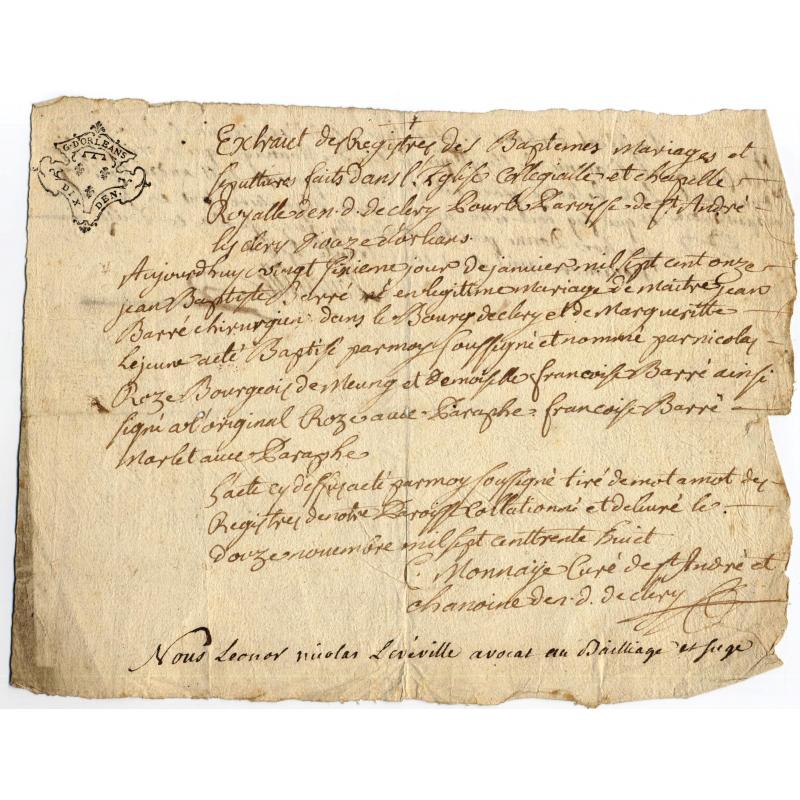 G. D'ORLEANS
DIX DEN.
Extraict des Registres des Baptemes mariages et
sepultures faits dans l'Eglise Collegialle et chapelle
Royalle de n. d. de clery Pour la Paroisse de st André
les clery Diocze d'orleans.
Aujourdhuy vingt sixieme jour de janvier mil sept cent onze
jean Baptiste Barré né en legitime mariage de maitre jean
Barré chirurgien dans le Bourg de clery et de Margueritte
Lejeune a eté Baptise par moy soussigné et nommé par nicolas
Roze Bourgeois de Meung et Demoiselle francoise Barré ainsi
signé a l'original Roze avec Paraphe francoise Barré
Marlet avec Paraphe
Lacte cy dessus a eté par moy soussigné tiré de mot a mot des
Registres de notre Paroisse Collationné et deliuré le
douze novembre mil sept cent trente huict
C. Monnaye Curé de st André et
chanoine de n. d. de clery
Nous Leonor nicolas Leréville avocat au Bailliage et siege